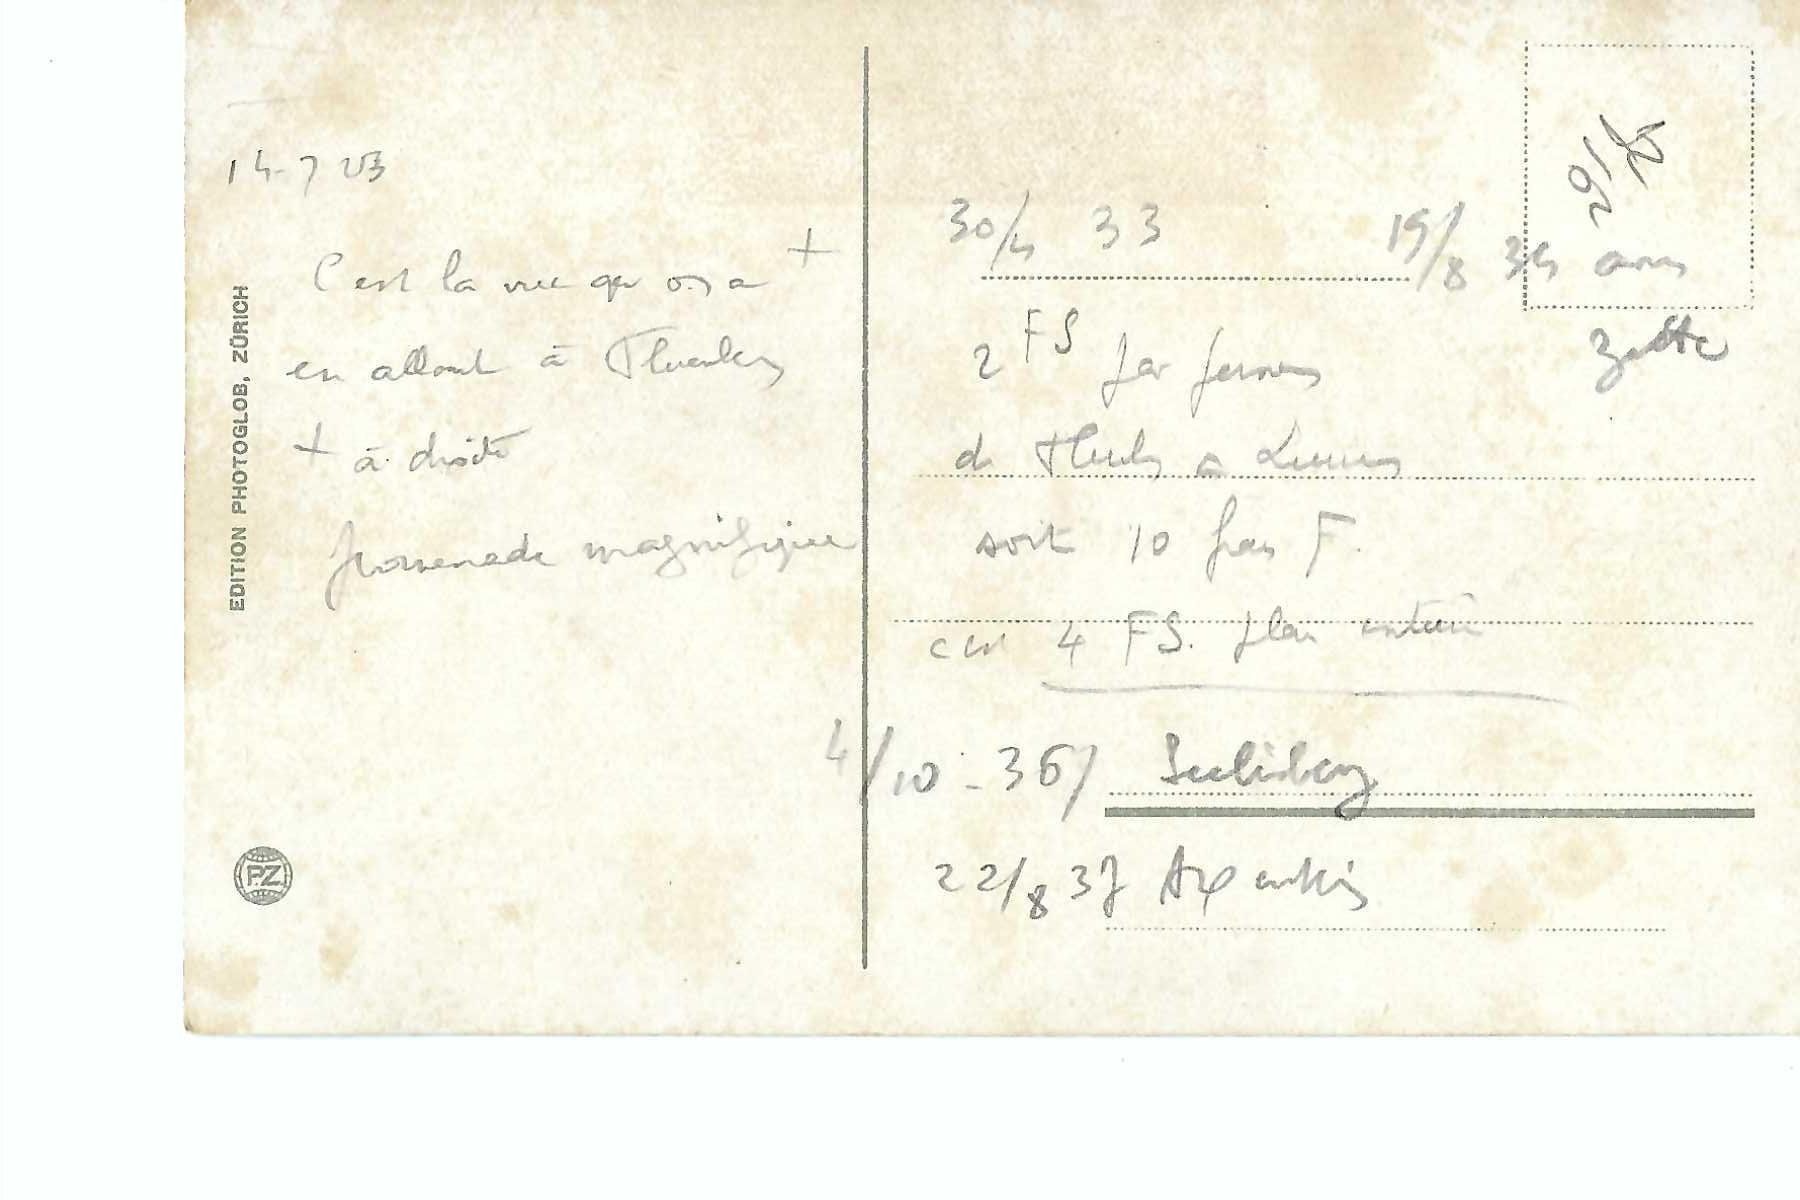 14-7 23
C'est la vue qu on a +
en allant à Fluelen
+ à droite
promenade magnifique
EDITION PHOTOGLOB, ZÜRICH
PZ
30/4 33
19/8 34 avec
Zette
2 FS par personnes
de Fluelen a
soit 10 frs F.
c'est 4 FS. plein
4/10 - 36/ Seelisberg
22/8 37 Axenstein